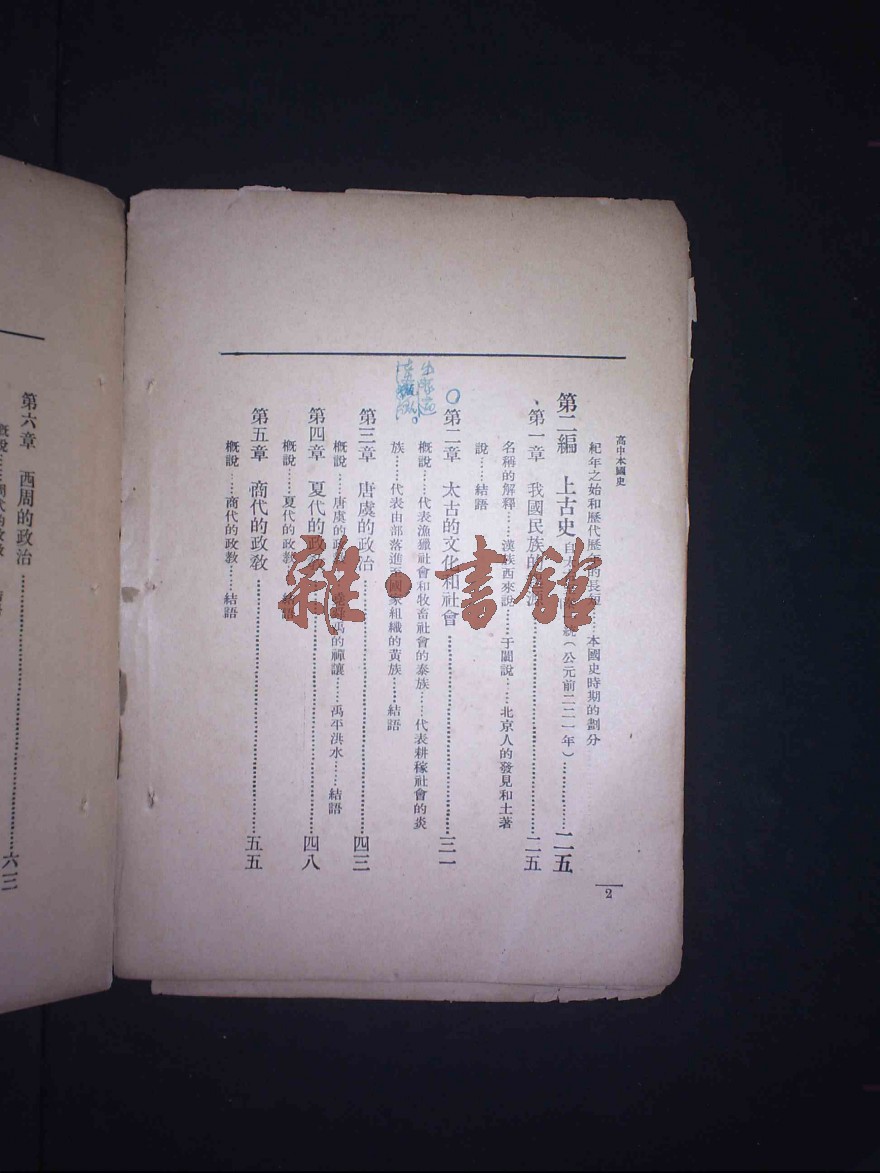 高中本國史
2
紀年之始和歷代歷年的長短……本國史時期的劃分
第二編 上古史 自太 統(公元前二二一年)……二五
第一章 我國民族的 ……二五
名稱的解釋……漢族西來說……于闐說……北京人的發見和土著
說……結語
第二章 太古的文化和社會……三一
概說……代表漁獵社會和牧畜社會的泰族……代表耕稼社會的炎
族……代表由部落進 國家組織的黃族……結語
第三章 唐虞的政治……四三
概說……唐虞的政 禹的禪讓……禹平洪水……結語
第四章 夏代的政教……四八
概說……夏代的政教……結語
第五章 商代的政教……五五
概說……商代的政教……結語
第六章 西周的政治……六二
雜·書館